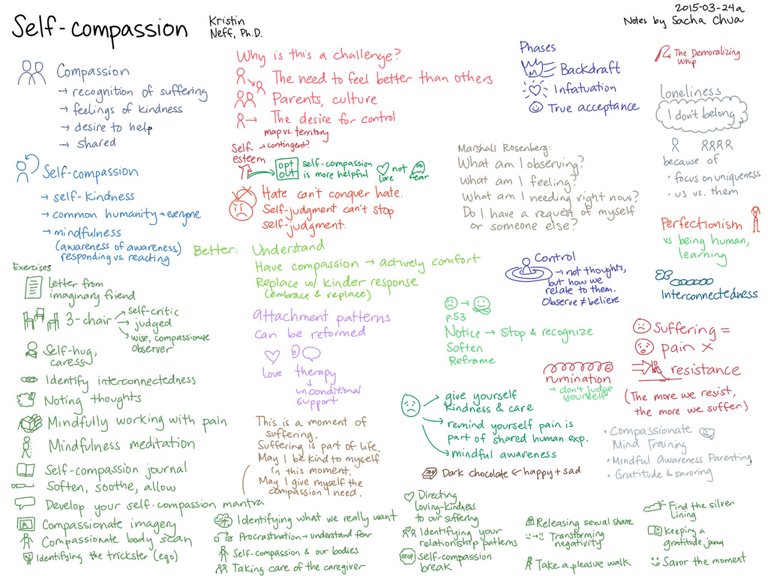 Self-compassion
Kristin
Neff, Ph.D.
2015-03-24a
Notes by Sacha Chua
Compassion
→ recognition of suffering
→ feelings of kindness
→ desire to help
→ shared
Self-compassion
→ self-kindness
→ common humanity → everyone
→ mindfulness
(awareness of awareness)
responding vs. reacting
Why is this a challenge?
The need to feel better than others
Parents, culture
The desire for control
map vs. territory
Self-esteem → contingent?
opt out
self-compassion
is more helpful
love not fear
Hate can't conquer hate.
Self-judgment can't stop
self-judgment.
Better: Understand
Have compassion → actively comfort
Replace w/ kinder response
(embrace & replace)
Attachment patterns
can be reformed
love therapy
↳ unconditional
support
This is a moment of
suffering.
Suffering is part of life.
May I be kind to myself
in this moment.
May I give myself the
compassion I need.
Phases
Backdraft
Infatuation
True acceptance
Marshall Rosenberg:
What am I observing?
What am I feeling?
What am I needing right now?
Do I have a request of myself
or someone else?
Control
→ not thoughts,
but how we
relate to them.
Observe ≠ believe
p.53
Notice → Stop & recognize
Soften
Reframe
rumination
→ don't judge
yourself
give yourself
kindness & care
remind yourself pain is
part of shared human exp.
mindful awareness
Dark chocolate ← happy + sad
The Demoralizing
Whip
loneliness
I don't belong
because of
• focus on uniqueness
• us vs. them
Perfectionism
vs being human,
learning
Interconnectedness
Suffering =
pain ×
resistance
(The more we resist,
the more we suffer)
• Compassionate
Mind Training
• Mindful Awareness Parenting
• Gratitude & savoring
Exercises
Letter from
imaginary friend
3-chair
self-critic
judged
wise, compassionate
observer
Self-hug,
caress
Identify interconnectedness
Noting thoughts
Mindfully working with pain
Mindfulness meditation
Self-compassion journal
Soften, soothe, allow
Develop your self-compassion mantra
Compassionate imagery
Compassionate body scan
Identifying the trickster (ego)
Identifying what we really want
Procrastination → understand fear
Self-compassion & our bodies
Taking care of the caregiver
Directing
loving-kindness
to our suffering
Identifying your
relationship patterns
STOP
Self-compassion
break
Releasing sexual shame
Transforming
negativity
Take a pleasure walk
Find the silver
lining
Keeping a
gratitude journal
Savor the moment